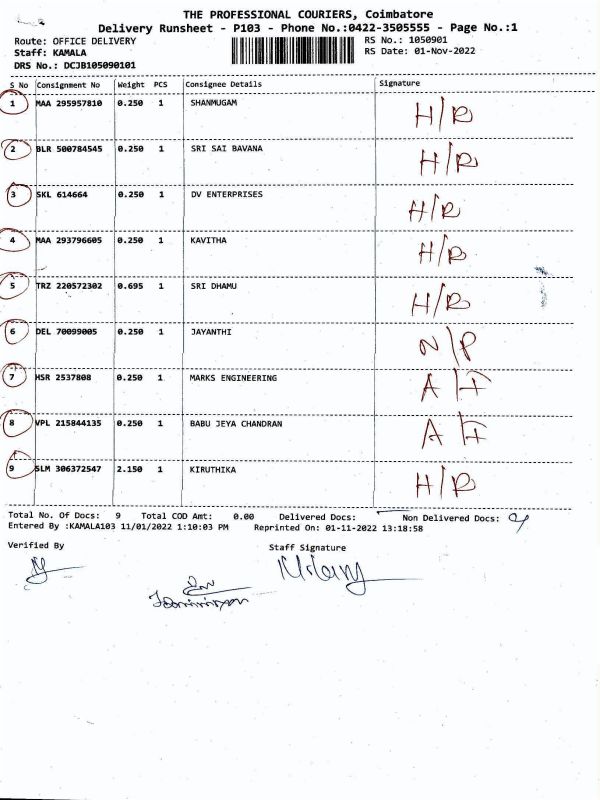 THE PROFESSIONAL COURIERS, Coimbatore
Delivery Runsheet - P103 - Phone No.:0422-3505555 - Page No.:1
Route: OFFICE DELIVERY RS No.: 1050901
Staff: KAMALA RS Date: 01-Nov-2022
DRS No.: DCJB105090101
S No Consignment No Weight PCS Consignee Details Signature
1 MAA 295957810 0.250 1 SHANMUGAM H/R
2 BLR 500784545 0.250 1 SRI SAI BAVANA H/R
3 SKL 614664 0.250 1 DV ENTERPRISES H/R
4 MAA 293796605 0.250 1 KAVITHA H/R
5 TRZ 220572302 0.695 1 SRI DHAMU H/R
6 DEL 70099005 0.250 1 JAYANTHI N/P
7 HSR 2537808 0.250 1 MARKS ENGINEERING
8 VPL 215844135 0.250 1 BABU JEYA CHANDRAN
9 SLM 306372547 2.150 1 KIRUTHIKA H/R
Total No. Of Docs: 9 Total COD Amt: 0.00 Delivered Docs: Non Delivered Docs: 9
Entered By :KAMALA103 11/01/2022 1:10:03 PM Reprinted On: 01-11-2022 13:18:58
Verified By Staff Signature